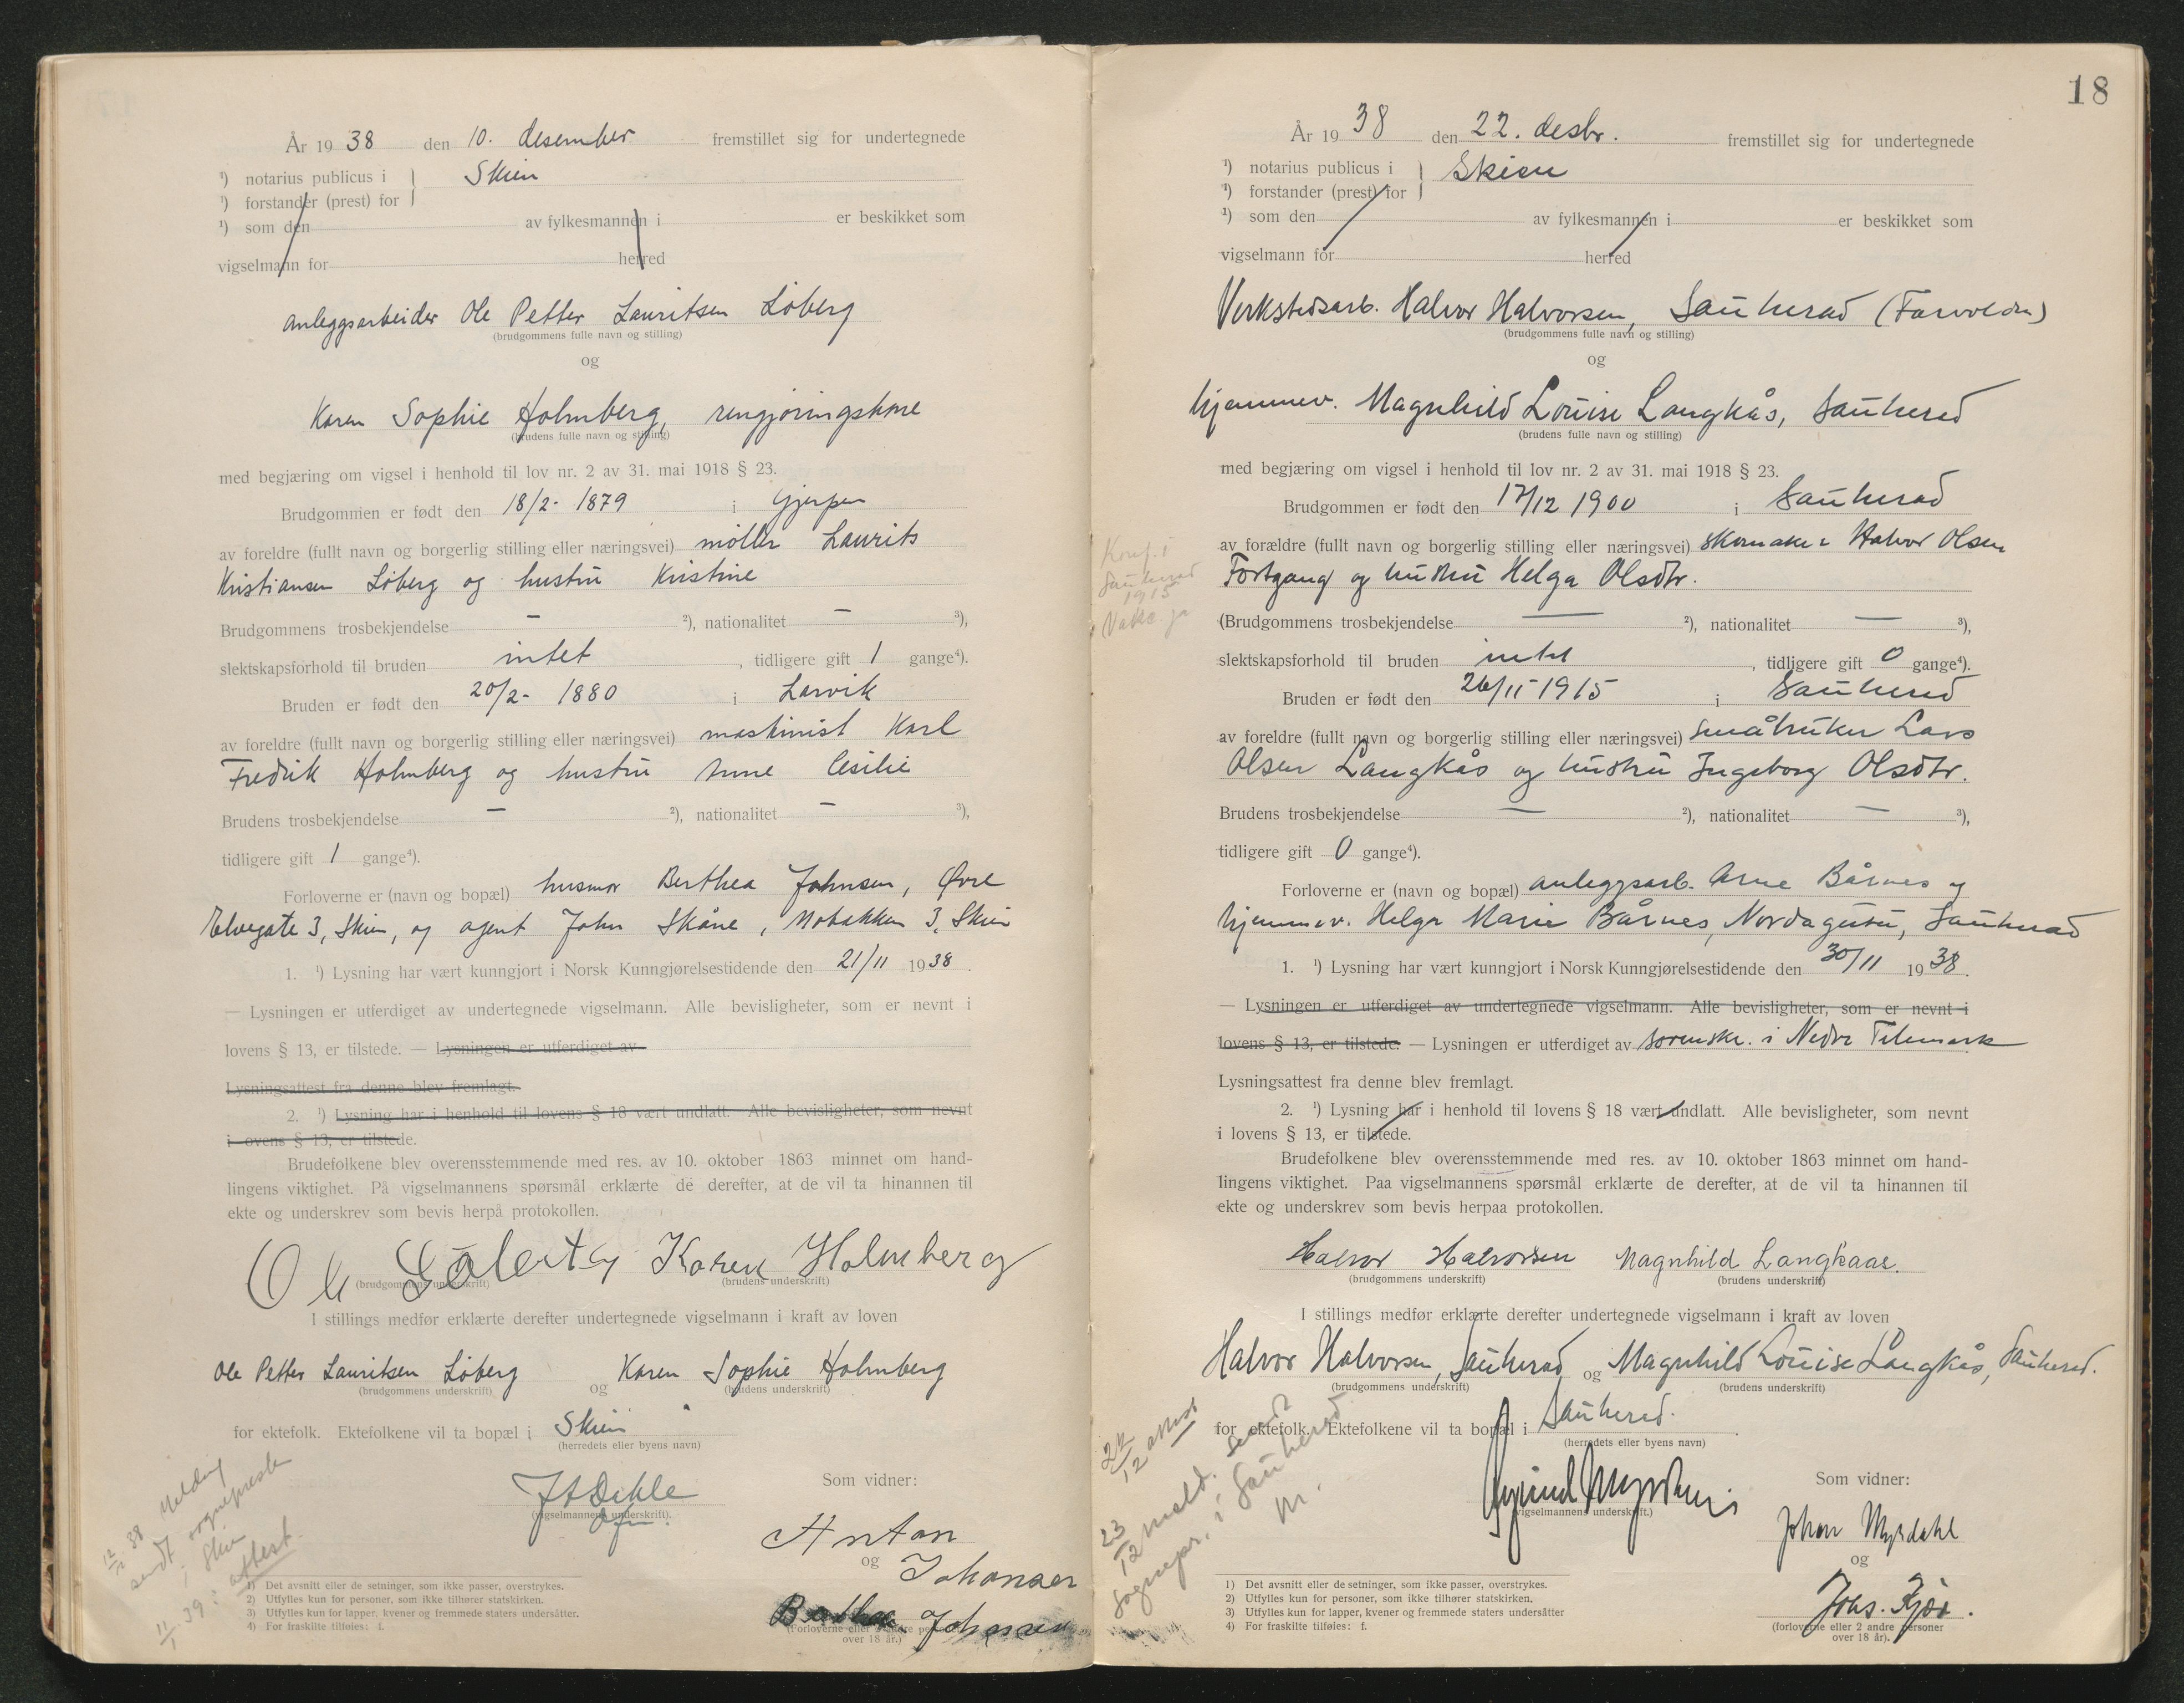 År 1938 den 10. desember fremstillet sig for undertegnede
¹) notarius publicus i } Skien
¹) forstander (prest) for
¹) som den av fylkesmannen i er beskikket som
vigselmann for herred
anleggsarbeider Ole Petter Lauritsen Løberg
(brudgommens fulle navn og stilling)
og
Karen Sophie Holmberg, rengjøringskone
(brudens fulle navn og stilling)
med begjæring om vigsel i henhold til lov nr. 2 av 31. mai 1918 § 23.
Brudgommen er født den 18/2- 1879 i Gjerpen
av foreldre (fullt navn og borgerlig stilling eller næringsvei) møller Laurits
Kristiansen Løberg og hustru Kristine
Brudgommens trosbekjendelse — ²), nationalitet — ³),
slektskapsforhold til bruden intet, tidligere gift 1 gange⁴).
Bruden er født den 20/2- 1880 i Larvik
av foreldre (fullt navn og borgerlig stilling eller næringsvei) maskinist Karl
Fredrik Holmberg og hustru Anne Cesilie
Brudens trosbekjendelse — ²), nationalitet — ³),
tidligere gift 1 gange⁴).
Forloverne er (navn og bopæl) husmor Berthea Johnsen, Øvre
Elvegate 3, Skien, og agent John Skåne, Mobakken 3, Skien
1. ¹) Lysning har vært kunngjort i Norsk Kunngjørelsestidende den 21/11 1938.
— Lysningen er utferdiget av undertegnede vigselmann. Alle bevisligheter, som er nevnt i
lovens § 13, er tilstede. — Lysningen er utferdiget av
Lysningsattest fra denne blev fremlagt.
2. ¹) Lysning har i henhold til lovens § 18 vært undlatt. Alle bevisligheter, som nevnt
i lovens § 13, er tilstede.
Brudefolkene blev overensstemmende med res. av 10. oktober 1863 minnet om hand-
lingens viktighet. På vigselmannens spørsmål erklærte de derefter, at de vil ta hinannen til
ekte og underskrev som bevis herpå protokollen.
Ole Løberg Karen Holmberg
(brudgommens underskrift) (brudens underskrift)
I stillings medfør erklærte derefter undertegnede vigselmann i kraft av loven
Ole Petter Lauritsen Løberg og Karen Sophie Holmberg
(brudgommens underskrift) (brudens underskrift)
for ektefolk. Ektefolkene vil ta bopæl i Skien
(herredets eller byens navn)
Som vidner:
(vigselmannens underskrift).
Anton
og Johansen
Berthea Johnsen
(Forloverne eller 2 andre personer
over 18 år.)
12/12 38 Melding
sendt sognepresten
i Skien
11/1 39: attest.
1) Det avsnitt eller de setninger, som ikke passer, overstrykes.
2) Utfylles kun for personer, som ikke tilhører statskirken.
3) Utfylles kun for lapper, kvener og fremmede staters undersåtter.
4) For fraskilte tilføies: f.
18
År 1938 den 22. desbr. fremstillet sig for undertegnede
¹) notarius publicus i } Skien
¹) forstander (prest) for
¹) som den av fylkesmannen i er beskikket som
vigselmann for herred
Verkstedsarb. Halvor Halvorsen, Sauherad (Farvolden)
(brudgommens fulle navn og stilling)
og
hjemmev. Magnhild Louise Langkås, Sauherad
(brudens fulle navn og stilling)
med begjæring om vigsel i henhold til lov nr. 2 av 31. mai 1918 § 23.
Brudgommen er født den 17/12 1900 i Sauherad
av forældre (fullt navn og borgerlig stilling eller næringsvei) skomaker Halvor Olsen
Fortgang og hustru Helga Olsdtr.
Konf. i
Sauherad
1915
Vaks. ja
(Brudgommens trosbekjendelse — ²), nationalitet — ³),
slektskapsforhold til bruden intet, tidligere gift 0 gange⁴).
Bruden er født den 26/11 1915 i Sauherad
av foreldre (fullt navn og borgerlig stilling eller næringsvei) småbruker Lars
Olsen Langkås og hustru Ingeborg Olsdtr.
Brudens trosbekjendelse — ²), nationalitet — ³),
tidligere gift 0 gange⁴).
Forloverne er (navn og bopæl) anleggsarb. Arne Bårnes og
hjemmev. Helga Marie Bårnes, Nordagutu, Sauherad
1. ¹) Lysning har vært kunngjort i Norsk Kunngjørelsestidende den 30/11 1938.
— Lysningen er utferdiget av undertegnede vigselmann. Alle bevisligheter, som er nevnt i
lovens § 13, er tilstede. — Lysningen er utferdiget av sorenskr. i Nedre Telemark
Lysningsattest fra denne blev fremlagt.
2. ¹) Lysning har i henhold til lovens § 18 vært undlatt. Alle bevisligheter, som nevnt
i lovens § 13, er tilstede.
Brudefolkene blev overensstemmende med res. av 10. oktober 1863 minnet om hand-
lingens viktighet. Paa vigselmannens spørsmål erklærte de derefter, at de vil ta hinannen til
ekte og underskrev som bevis herpaa protokollen.
Halvor Halvorsen Magnhild Langkaas.
(brudgommens underskrift) (brudens underskrift)
I stillings medfør erklærte derefter undertegnede vigselmann i kraft av loven
Halvor Halvorsen, Sauherad og Magnhild Louise Langkås, Sauherad.
(brudgommens underskrift) (brudens underskrift)
for ektefolk. Ektefolkene vil ta bopæl i Sauherad.
(herredets eller byens navn)
Som vidner:
(vigselmannens underskrift.)
Johan Myrdahl
og
Johs. Kjær.
(forloverne eller 2 andre personer
over 18 år).
22/12 attest
23/12 meld. sendt
sognepr. i Sauherad
M.
1) Det avsnitt eller de setninger, som ikke passer, overstrykes.
2) Utfylles kun for personer, som ikke tilhører statskirken.
3) Utfylles kun for lapper, kvener og fremmede staters undersåtter
4) For fraskilte tilføles: f.